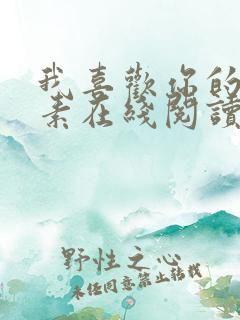 我喜歡你的
素在綫閱讀
野性之心
未经同意禁止转载